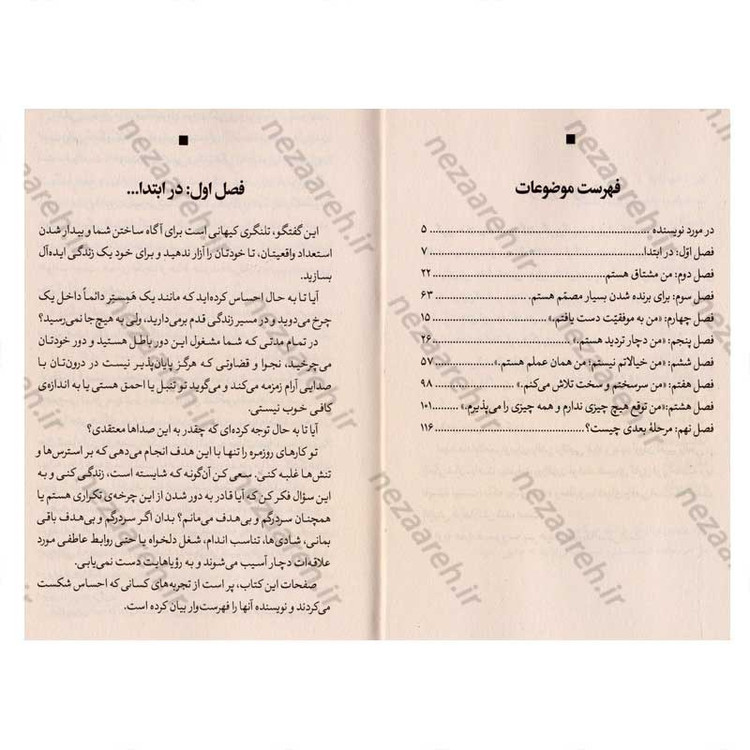 فهرست موضوعات
در مورد نویسنده ........ ۵
فصل اوّل: در ابتدا........ ۷
فصل دوم: من مشتاق هستم. ........ ۲۲
فصل سوم: برای برنده شدن بسیار مصمّم هستم. ........ ۶۳
فصل چهارم: «من به موفقیّت دست یافتم.» ........ ۱۵
فصل پنجم: «من دچار تردید هستم.» ........ ۲۶
فصل ششم: «من خیالاتم نیستم؛ من همان عملم هستم.» ........ ۵۷
فصل هفتم: «من سرسختم و سخت تلاش می‌کنم.» ........ ۹۸
فصل هشتم: «من توقع هیچ چیزی ندارم و همه چیزی را می‌پذیرم.» ........ ۱۰۱
فصل نهم: مرحلهٔ بعدی چیست؟ ........ ۱۱۶
فصل اول: در ابتدا...
این گفتگو، تلنگری کیهانی است برای آگاه ساختن شما و بیدار شدن
استعداد واقعیتان، تا خودتان را آزار ندهید و برای خود یک زندگی ایده‌آل
بسازید.
آیا تا به حال احساس کرده‌اید که مانند یک همستر دائماً داخل یک
چرخ می‌دوید و در مسیر زندگی قدم برمی‌دارید، ولی به هیچ جا نمی‌رسید؟
در تمام مدتی که شما مشغول این دور باطل هستید و دور خودتان
می‌چرخید، نجوا و قضاوتی که هرگز پایان‌پذیر نیست در درونتان با
صدایی آرام زمزمه می‌کند و می‌گوید تو تنبل یا احمق هستی یا به اندازه‌ی
کافی خوب نیستی.
آیا تا به حال توجه کرده‌ای که چقدر به این صداها معتقدی؟
تو کارهای روزمره را تنها با این هدف انجام می‌دهی که بر استرس‌ها و
تنش‌ها غلبه کنی. سعی کن آن‌گونه که شایسته است، زندگی کنی و به
این سؤال فکر کن که آیا قادر به دور شدن از این چرخه‌ی تکراری هستم یا
همچنان سردرگم و بی‌هدف می‌مانم؟ بدان اگر سردرگم و بی‌هدف باقی
بمانی، شادی‌ها، تناسب اندام، شغل دلخواه یا حتی روابط عاطفی مورد
علاقه‌ات دچار آسیب می‌شوند و به رؤیاهایت دست نمی‌یابی.
صفحات این کتاب، پر است از تجربه‌های کسانی که احساس شکست
می‌کردند و نویسنده آنها را فهرست‌وار بیان کرده است.
nezaareh.ir